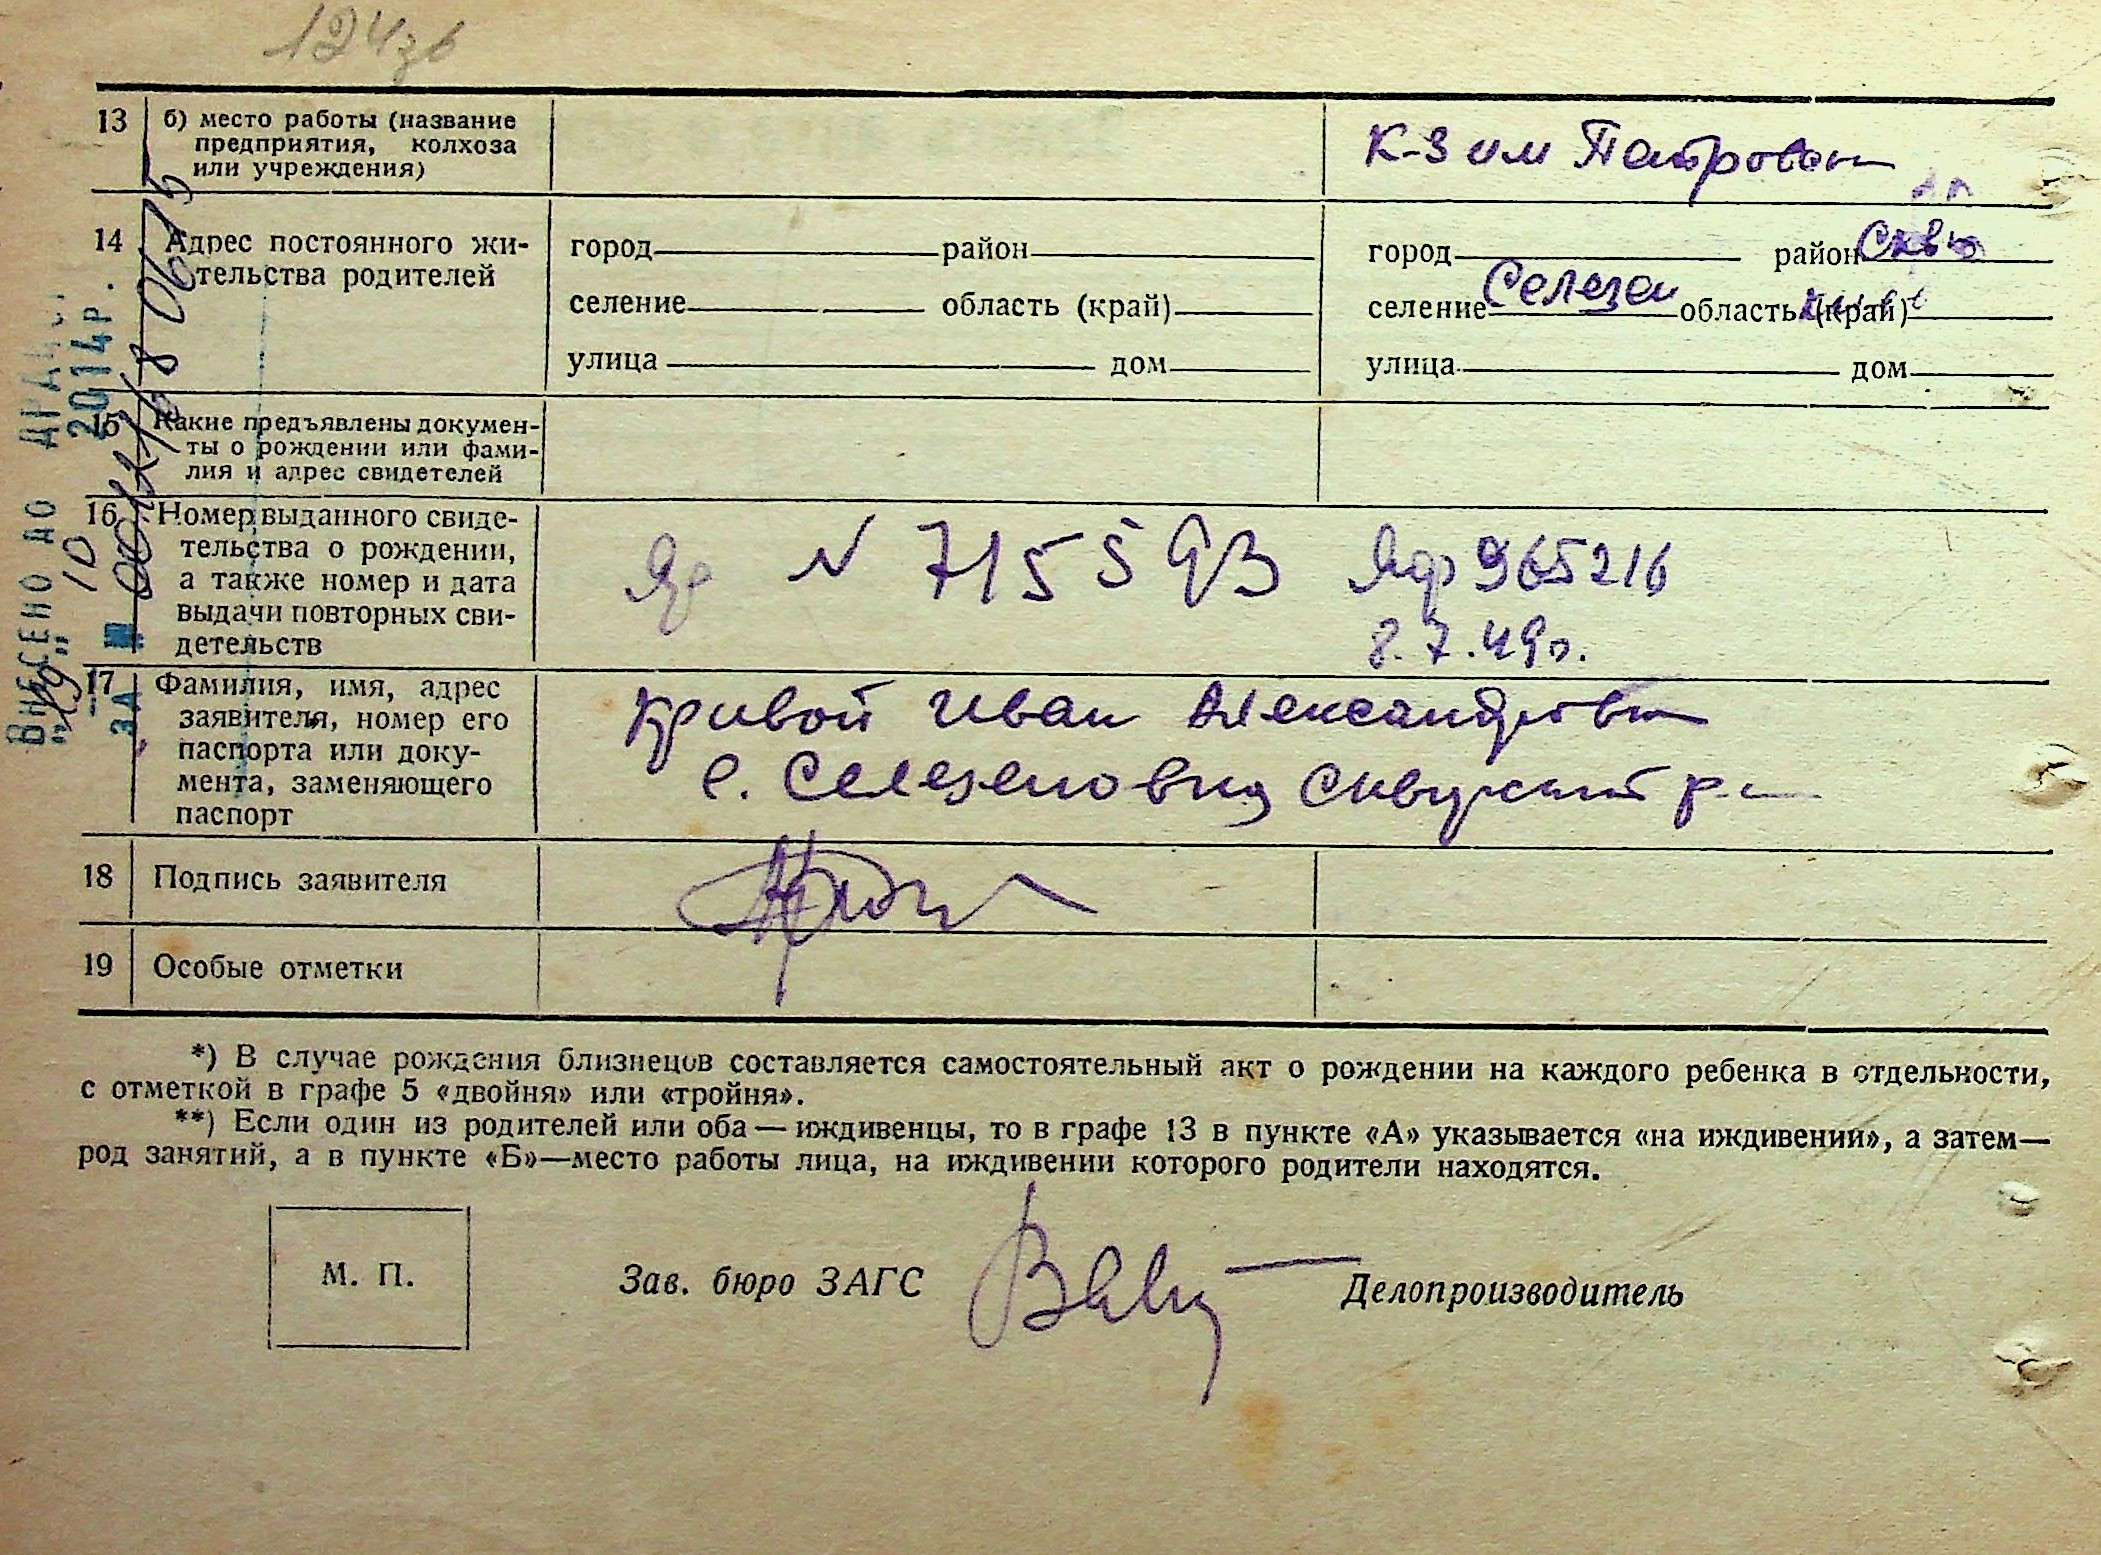 13
б) место работы (название
предприятия, колхоза
или учреждения)
К-з им
14
Адрес постоянного жи-
тельства родителей
город район
селение область (край)
улица дом
город район Сквы
селение Селезен область (край)
улица дом
15
Какие предъявлены докумен-
ты о рождении или фами-
лия и адрес свидетелей
16
Номер выданного свиде-
тельства о рождении,
а также номер и дата
выдачи повторных сви-
детельств
N 715593
965216
8.7.49
17
Фамилия, имя, адрес
заявителя, номер его
паспорта или доку-
мента, заменяющего
паспорт
Кривой Иван Александрович
с.
18
Подпись заявителя
19
Особые отметки
*) В случае рождения близнецов составляется самостоятельный акт о рождении на каждого ребенка в отдельности,
с отметкой в графе 5 «двойня» или «тройня».
**) Если один из родителей или оба — иждивенцы, то в графе 13 в пункте «А» указывается «на иждивении», а затем—
род занятий, а в пункте «Б»—место работы лица, на иждивении которого родители находятся.
М. П.
Зав. бюро ЗАГС
Делопроизводитель
ВНЕСЕНО ДО
10 2014р.
ЗА